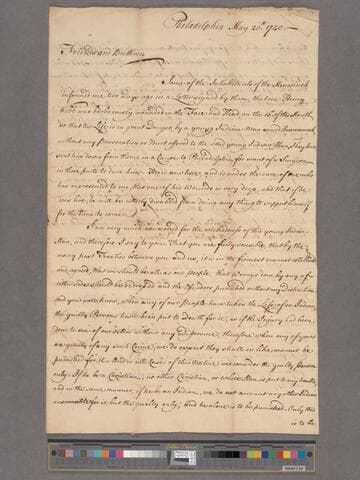 Philadelphia May 20th. 1740.
Friends and Brethren
Some of the Inhabitants of the Menissinck
informed me two Days ago in a Letter signed by them, that one Henry
Webb was barbarously wounded in the Face and Head on the of the Month,
so that his Life is in great Danger, by a young Indian Man named
without any Provocation or Hurt offered to the said young Indian Man. They have
sent him down from thence in a Canoe to Philadelphia, for want of a Surgeon
in those parts to dress him. He is now here, and is under the care of one who
has represented to me that one of his Wounds is very deep, and that if he
does live, he will be utterly disabled from doing any thing to support himself
for the time to come.
I am very much concerned for the wickedness of this young Indian
Man, and therefore I say to you, That you are fully sensible, that by the
many past Treaties between you and us, it is in the firmest manner established
and agreed, that we should be all as one people, that Wrongs done by any of
either side should be redressed and the Offenders punished without any distinction
And you well know, when any of our People have taken the Life of an Indian,
the guilty Persons have been put to Death for it, as if the Injury had been
done to one of us, therefore when any of yours
are guilty of any such Crime, we do expect they shall in like manner be
punished for it. And in all Cases of this Nature we consider the guilty person
only. If he be a Christian, no other Christian, or White Man is put to any trouble,
and in the same manner if he be an Indian, we do not account any other Indian
answerable for it, but the guilty only, and he alone is to be punished. Only this
is to be